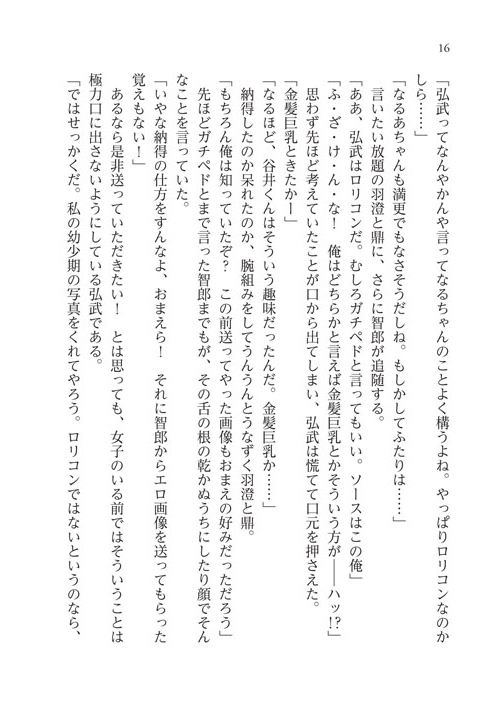 16
「弘武ってなんやかんや言ってなるちゃんのことよく構うよね。やっぱりロリコンなのか
しら……」
「なるあちゃんも満更でもなさそうだしね。もしかしてふたりは……」
言いたい放題の羽澄と鼎に、さらに智郎が追随する。
「ああ、弘武はロリコンだ。むしろガチペドと言ってもいい。ソースはこの俺」
「ふ・ざ・け・ん・な！　俺はどちらかと言えば金髪巨乳とかそういう方が――ハッ!?」
思わず先ほど考えていたことが口から出てしまい、弘武は慌てて口元を押さえた。
「金髪巨乳ときたかー」
「なるほど、谷井くんはそういう趣味だったんだ。金髪巨乳か……」
納得したのか呆れたのか、腕組みをしてうんうんとうなずく羽澄と鼎。
「もちろん俺は知っていたぞ？　この前送ってやった画像もおまえの好みだっただろう」
先ほどガチペドとまで言った智郎までもが、その舌の根の乾かぬうちにしたり顔でそん
なことを言っていた。
「いやな納得の仕方をすんなよ、おまえら！　それに智郎からエロ画像を送ってもらった
覚えもない！」
あるなら是非送っていただきたい！　とは思っても、女子のいる前ではそういうことは
極力口に出さないようにしている弘武である。
「ではせっかくだ。私の幼少期の写真をくれてやろう。ロリコンではないというのなら、